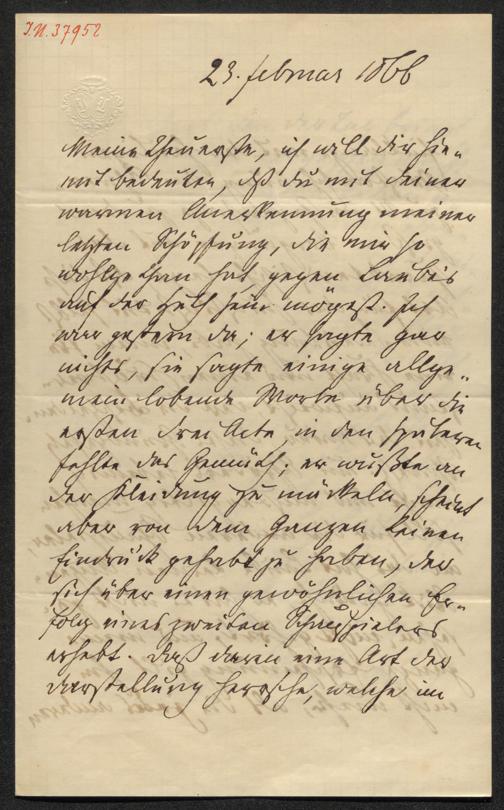 I.N. 37952
23. februar 1866
Meine Theuerste, ich will dir hie-
mit bedeuten, dß du mit deiner
warmen Anerkennung meiner
letzten Schöpfung, die mir so
wohlgethan hat gegen Laube's
auf der Huth sein mögest. Ich
war gestern da; er sagte gar
nichts, sie sagte einige allge-
mein lobende Worte über die
ersten drei Acte, in den späteren
fehlte das Gemüth; er wußte an
der Kleidung zu mäckeln, scheint
aber von dem Ganzen keinen
Eindruck gehabt zu haben, der
sich über einen gewöhnlichen Er-
folg eines zweiten Schauspielers
erhebt. Daß darin eine Art der
Darstellung herrsche, welche im